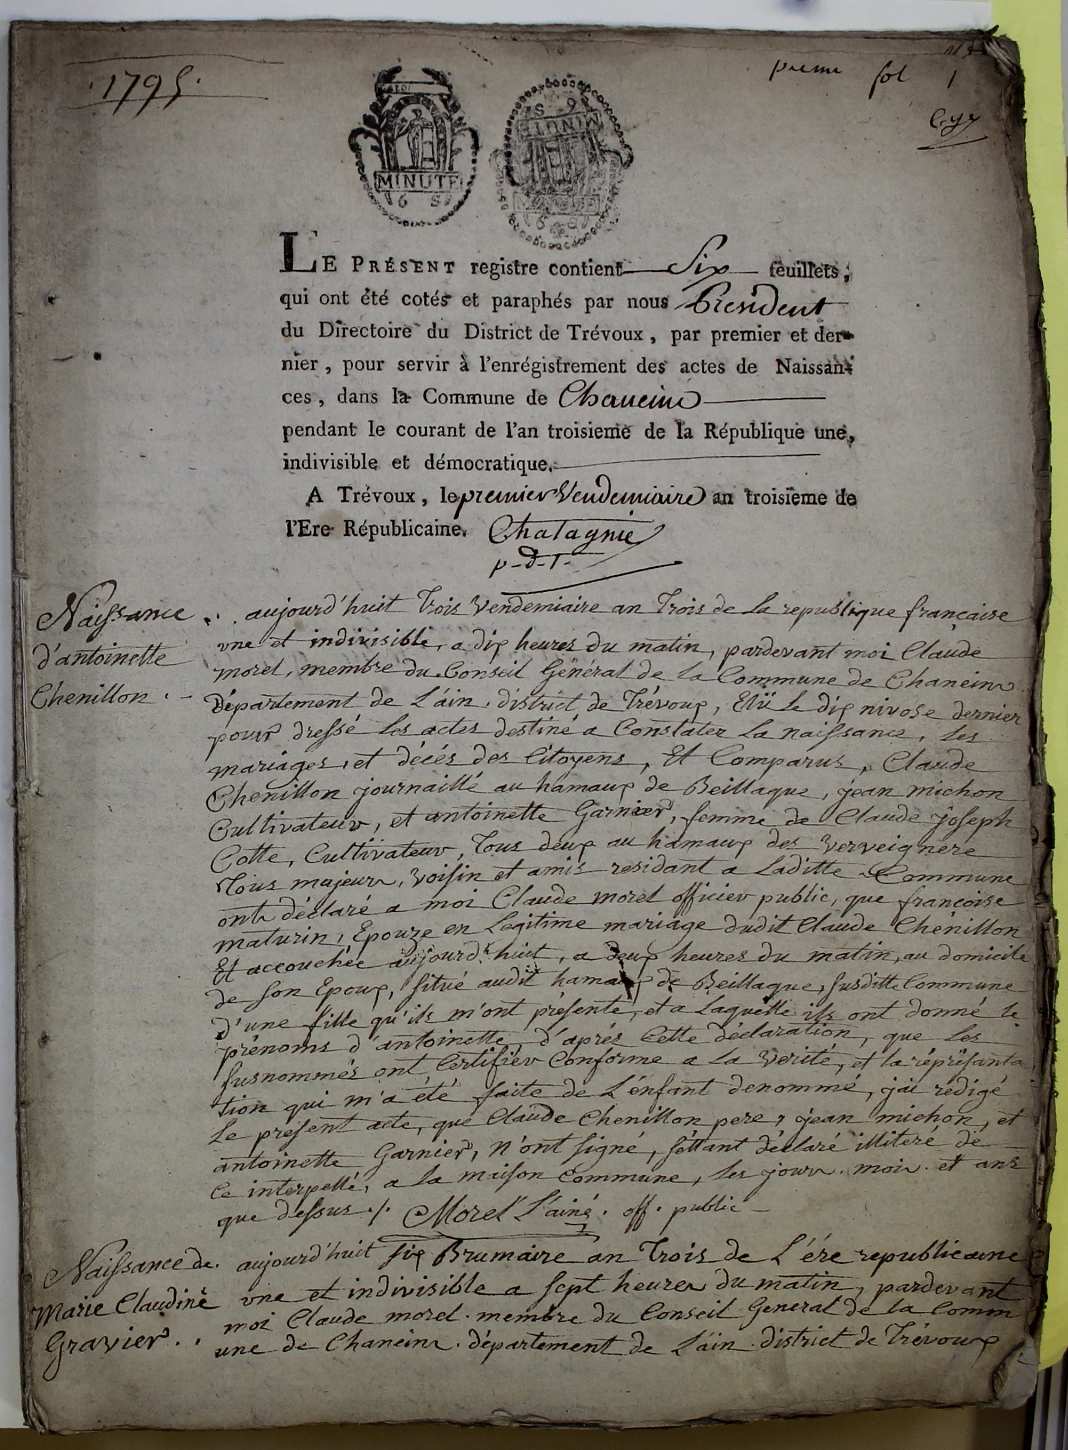 1795.
premier fol 1
MINUTE
LE PRÉSENT registre contient Six feuillets,
qui ont été cotés et paraphés par nous President
du Directoire du District de Trévoux, par premier et der-
nier, pour servir à l'enrégistrement des actes de Naissan-
ces, dans la Commune de Chaneins
pendant le courant de l'an troisieme de la République une,
indivisible et démocratique.
A Trévoux, le premier Vendemiaire an troisieme de
l'Ere Républicaine. Chatagnié
p-d-t-
Naissance
d'antoinette
Chenillon
aujourd'huit Trois Vendemiaire an Trois de la republique française
une et indivisible, a dix heures du matin, pardevant moi Claude
morel, membre du Conseil Général de la Commune de Chaneins
Département de L'ain. district de Trévoux, Elü le dix nivose dernier
pour dressé les actes destiné a Constater la naissance, les
mariages, et décés des Citoyens, Et Comparus, Claude
Chenillon journaillé au hamaux de Beillaque, jean michon
Cultivateur, et antoinette Garnier, femme de Claude joseph
Cotte, Cultivateur, Tous deux au hamaux des verveignere
Tous majeurs, voisin et amis residant a Laditte Commune
ont déclaré a moi Claude morel officier public, que françoise
maturin, Epouze en Légitime mariage dudit Claude Chénillon
Et accouchée aujourd'huit, a deux heures du matin, au domicile
de son Epoux, situé audit hamaux de Beillaque, susditte Commune
d'une fille qu'ils m'ont présenté, et a Laquelle ils ont donné le
prénoms d'antoinette, d'aprés Cette déclaration, que les
susnommés ont Certifier Conforme a la verité, et la représanta
tion qui m'a été faite de L'énfant denommé, j'ai rédigé
Le présent acte, que Claude Chenillon pere, jean michon, et
antoinette Garnier, n'ont signé, séttant déclaré illitéré de
Ce interpellé, a la maison Commune, les jour. mois. et ans
que dessus ./. Morel L'ainé. off. public
Naissance de
Marie Claudine
Gravier..
aujourd'huit six Brumaire an Trois de L'ére republicaine
une et indivisible a sept heures du matin, pardevant
moi Claude morel. membre du Conseil General de la Comm
une de Chaneins. département de L'ain. district de Trévoux